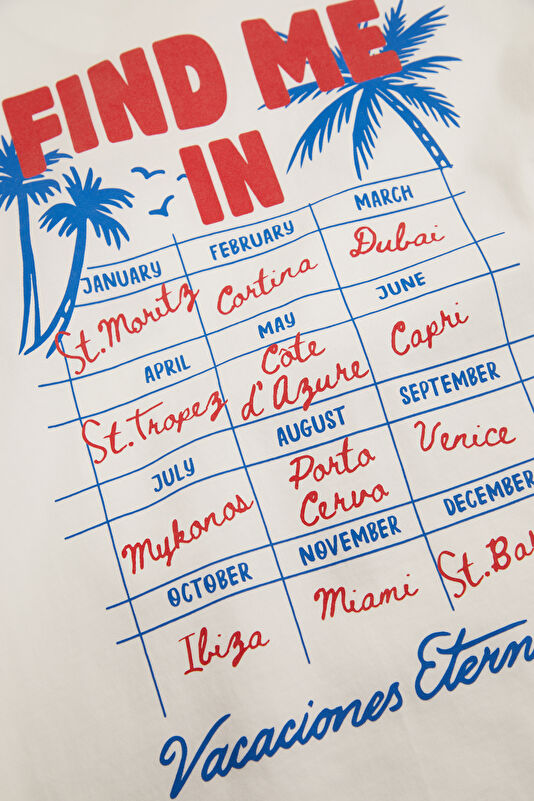 FIND ME
IN
JANUARY FEBRUARY MARCH
St. Moritz Cortina Dubai
APRIL MAY JUNE
St. Tropez Cote d'Azure Capri
JULY AUGUST SEPTEMBER
Mykonos Porto Cervo Venice
OCTOBER NOVEMBER DECEMBER
Ibiza Miami St. Ba
Vacaciones Etern